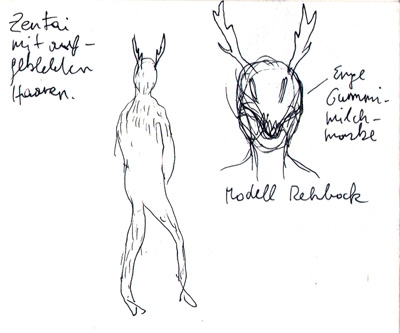 Zentai
mit auf-
geklebten
Haaren.
Enge
Gummi-
milch-
maske
Modell Rehbock